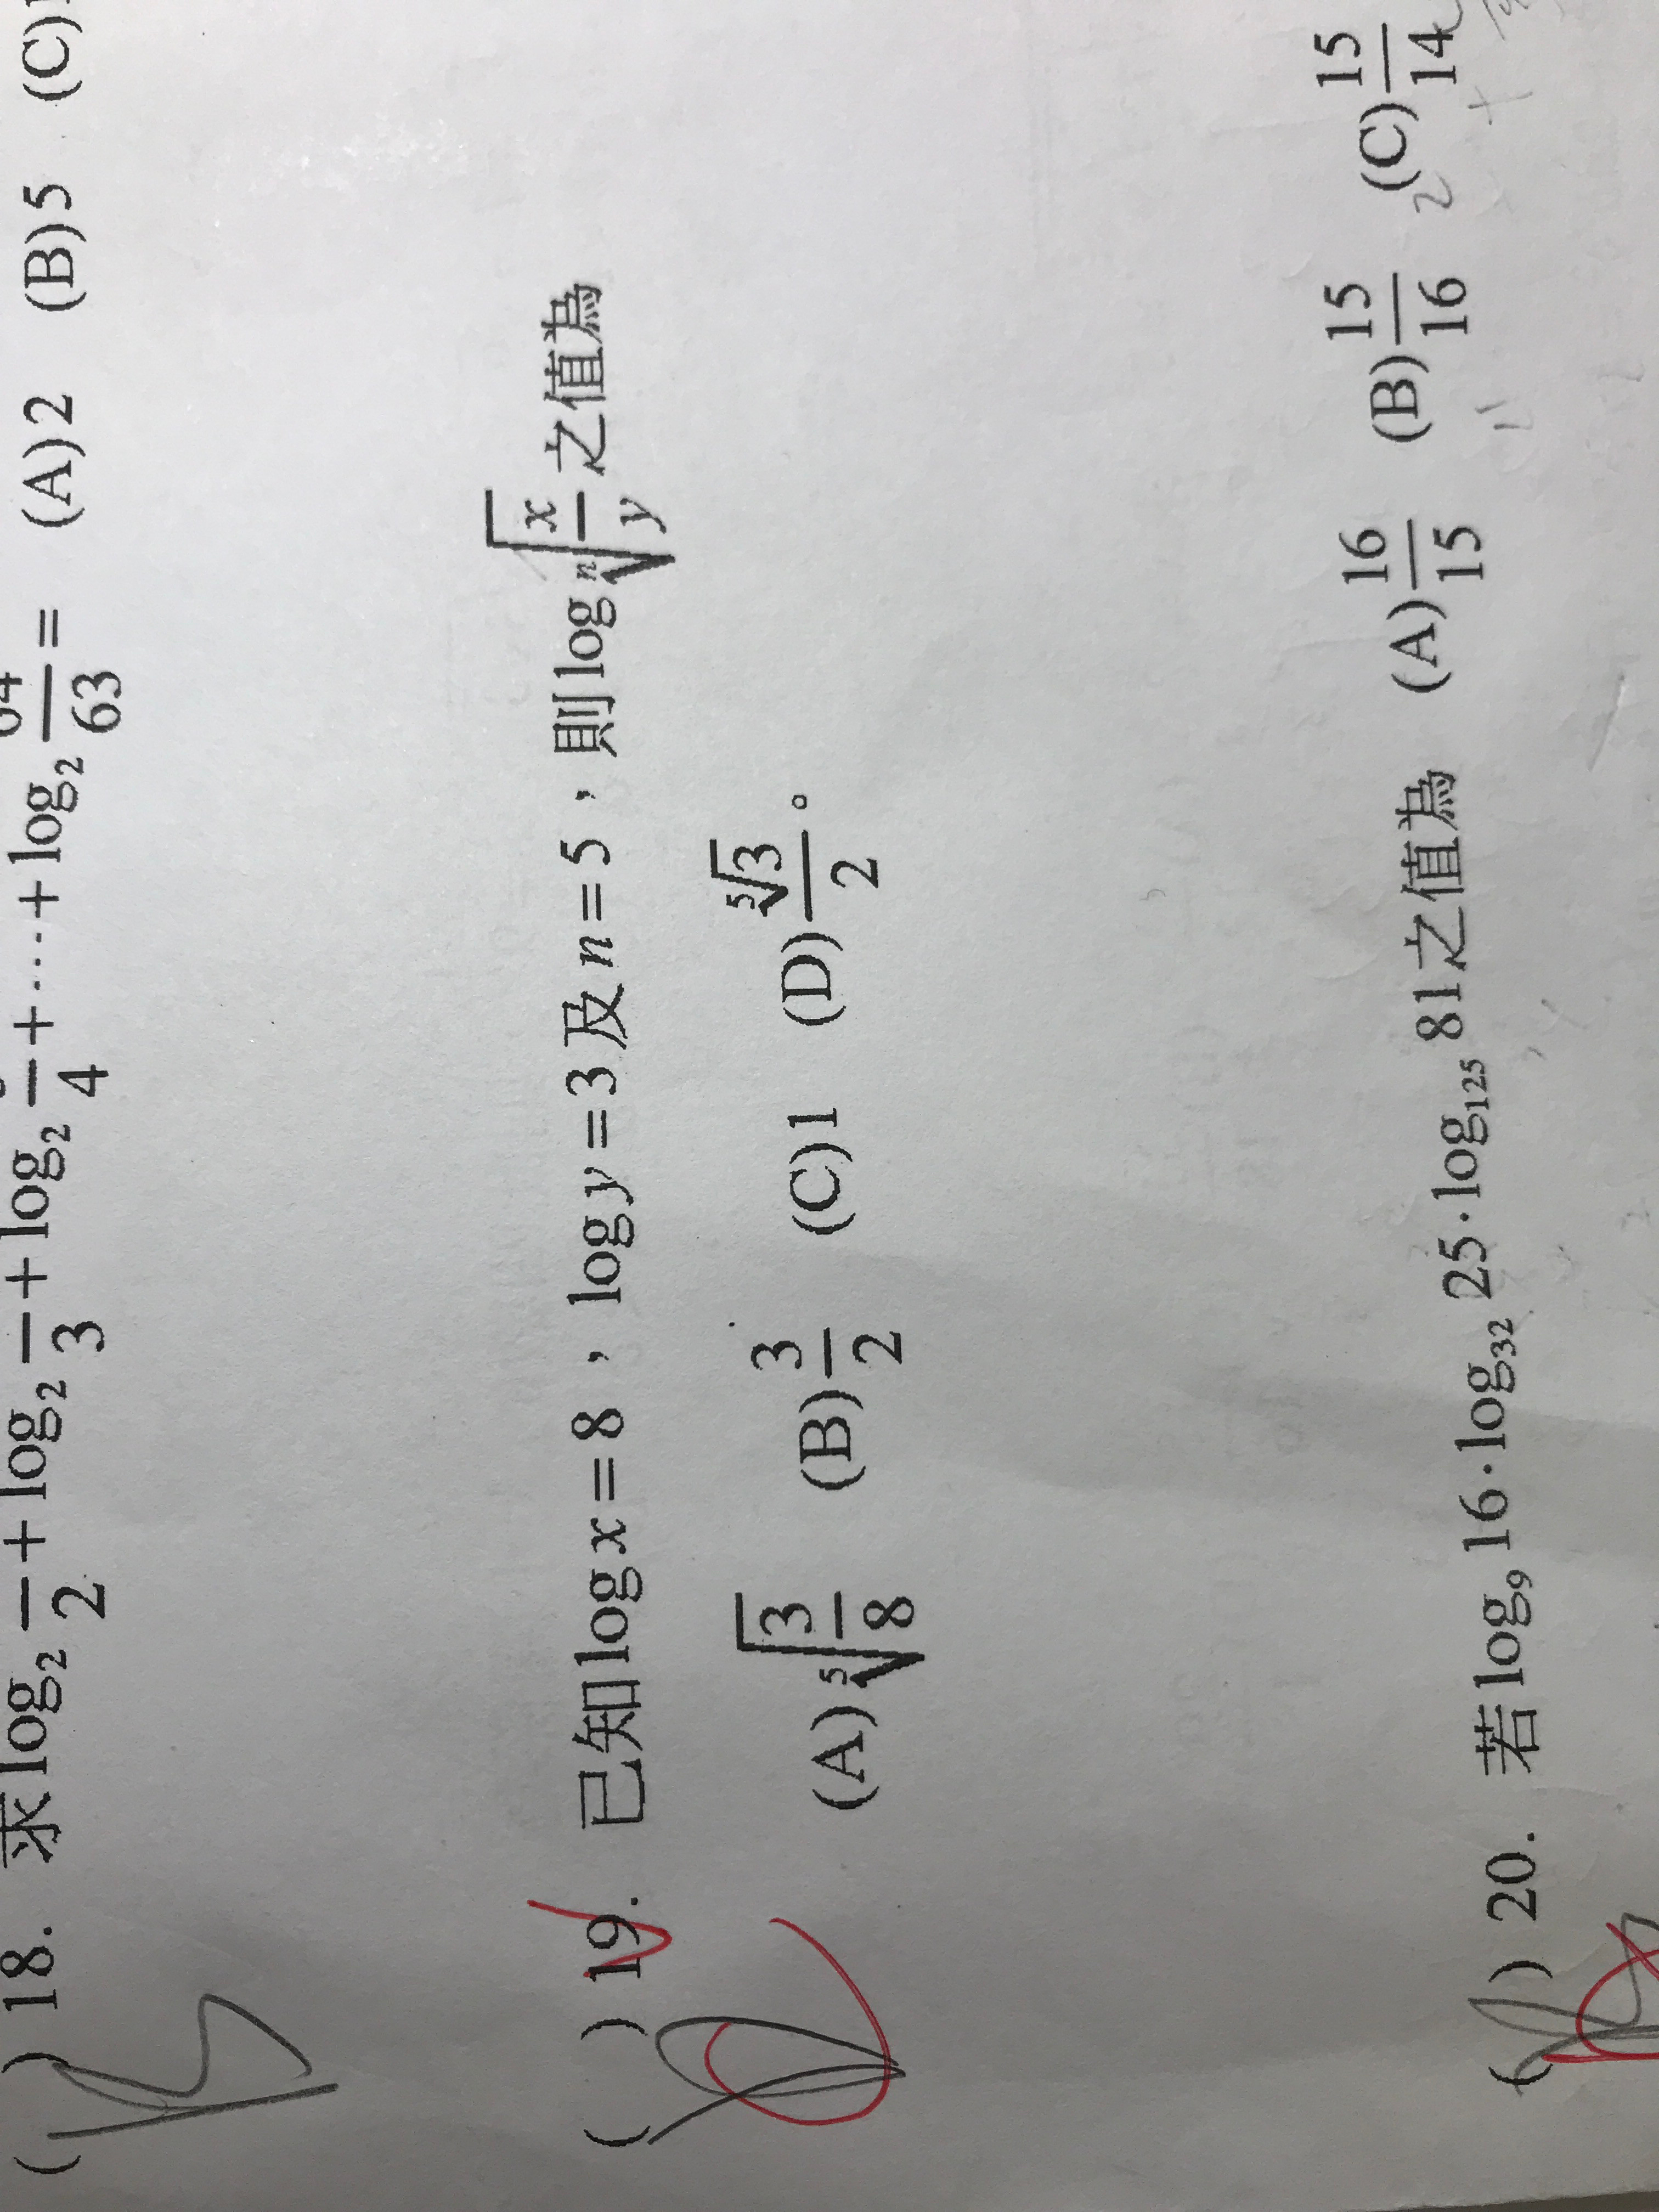 ( ) 18. 求log₂ —/2 + log₂ —/3 + log₂ —/4 + ⋯ + log₂ 64/63 = (A) 2 (B) 5 (C)
( ) 19. 已知log x = 8，log y = 3及n = 5，則log ⁿ√(x/y) 之值為
(A) ⁵√(3/8) (B) 3/2 (C) 1 (D) ⁵√3/2。
( ) 20. 若log₉ 16·log₃₂ 25·log₁₂₅ 81之值為 (A) 16/15 (B) 15/16 (C) 15/14